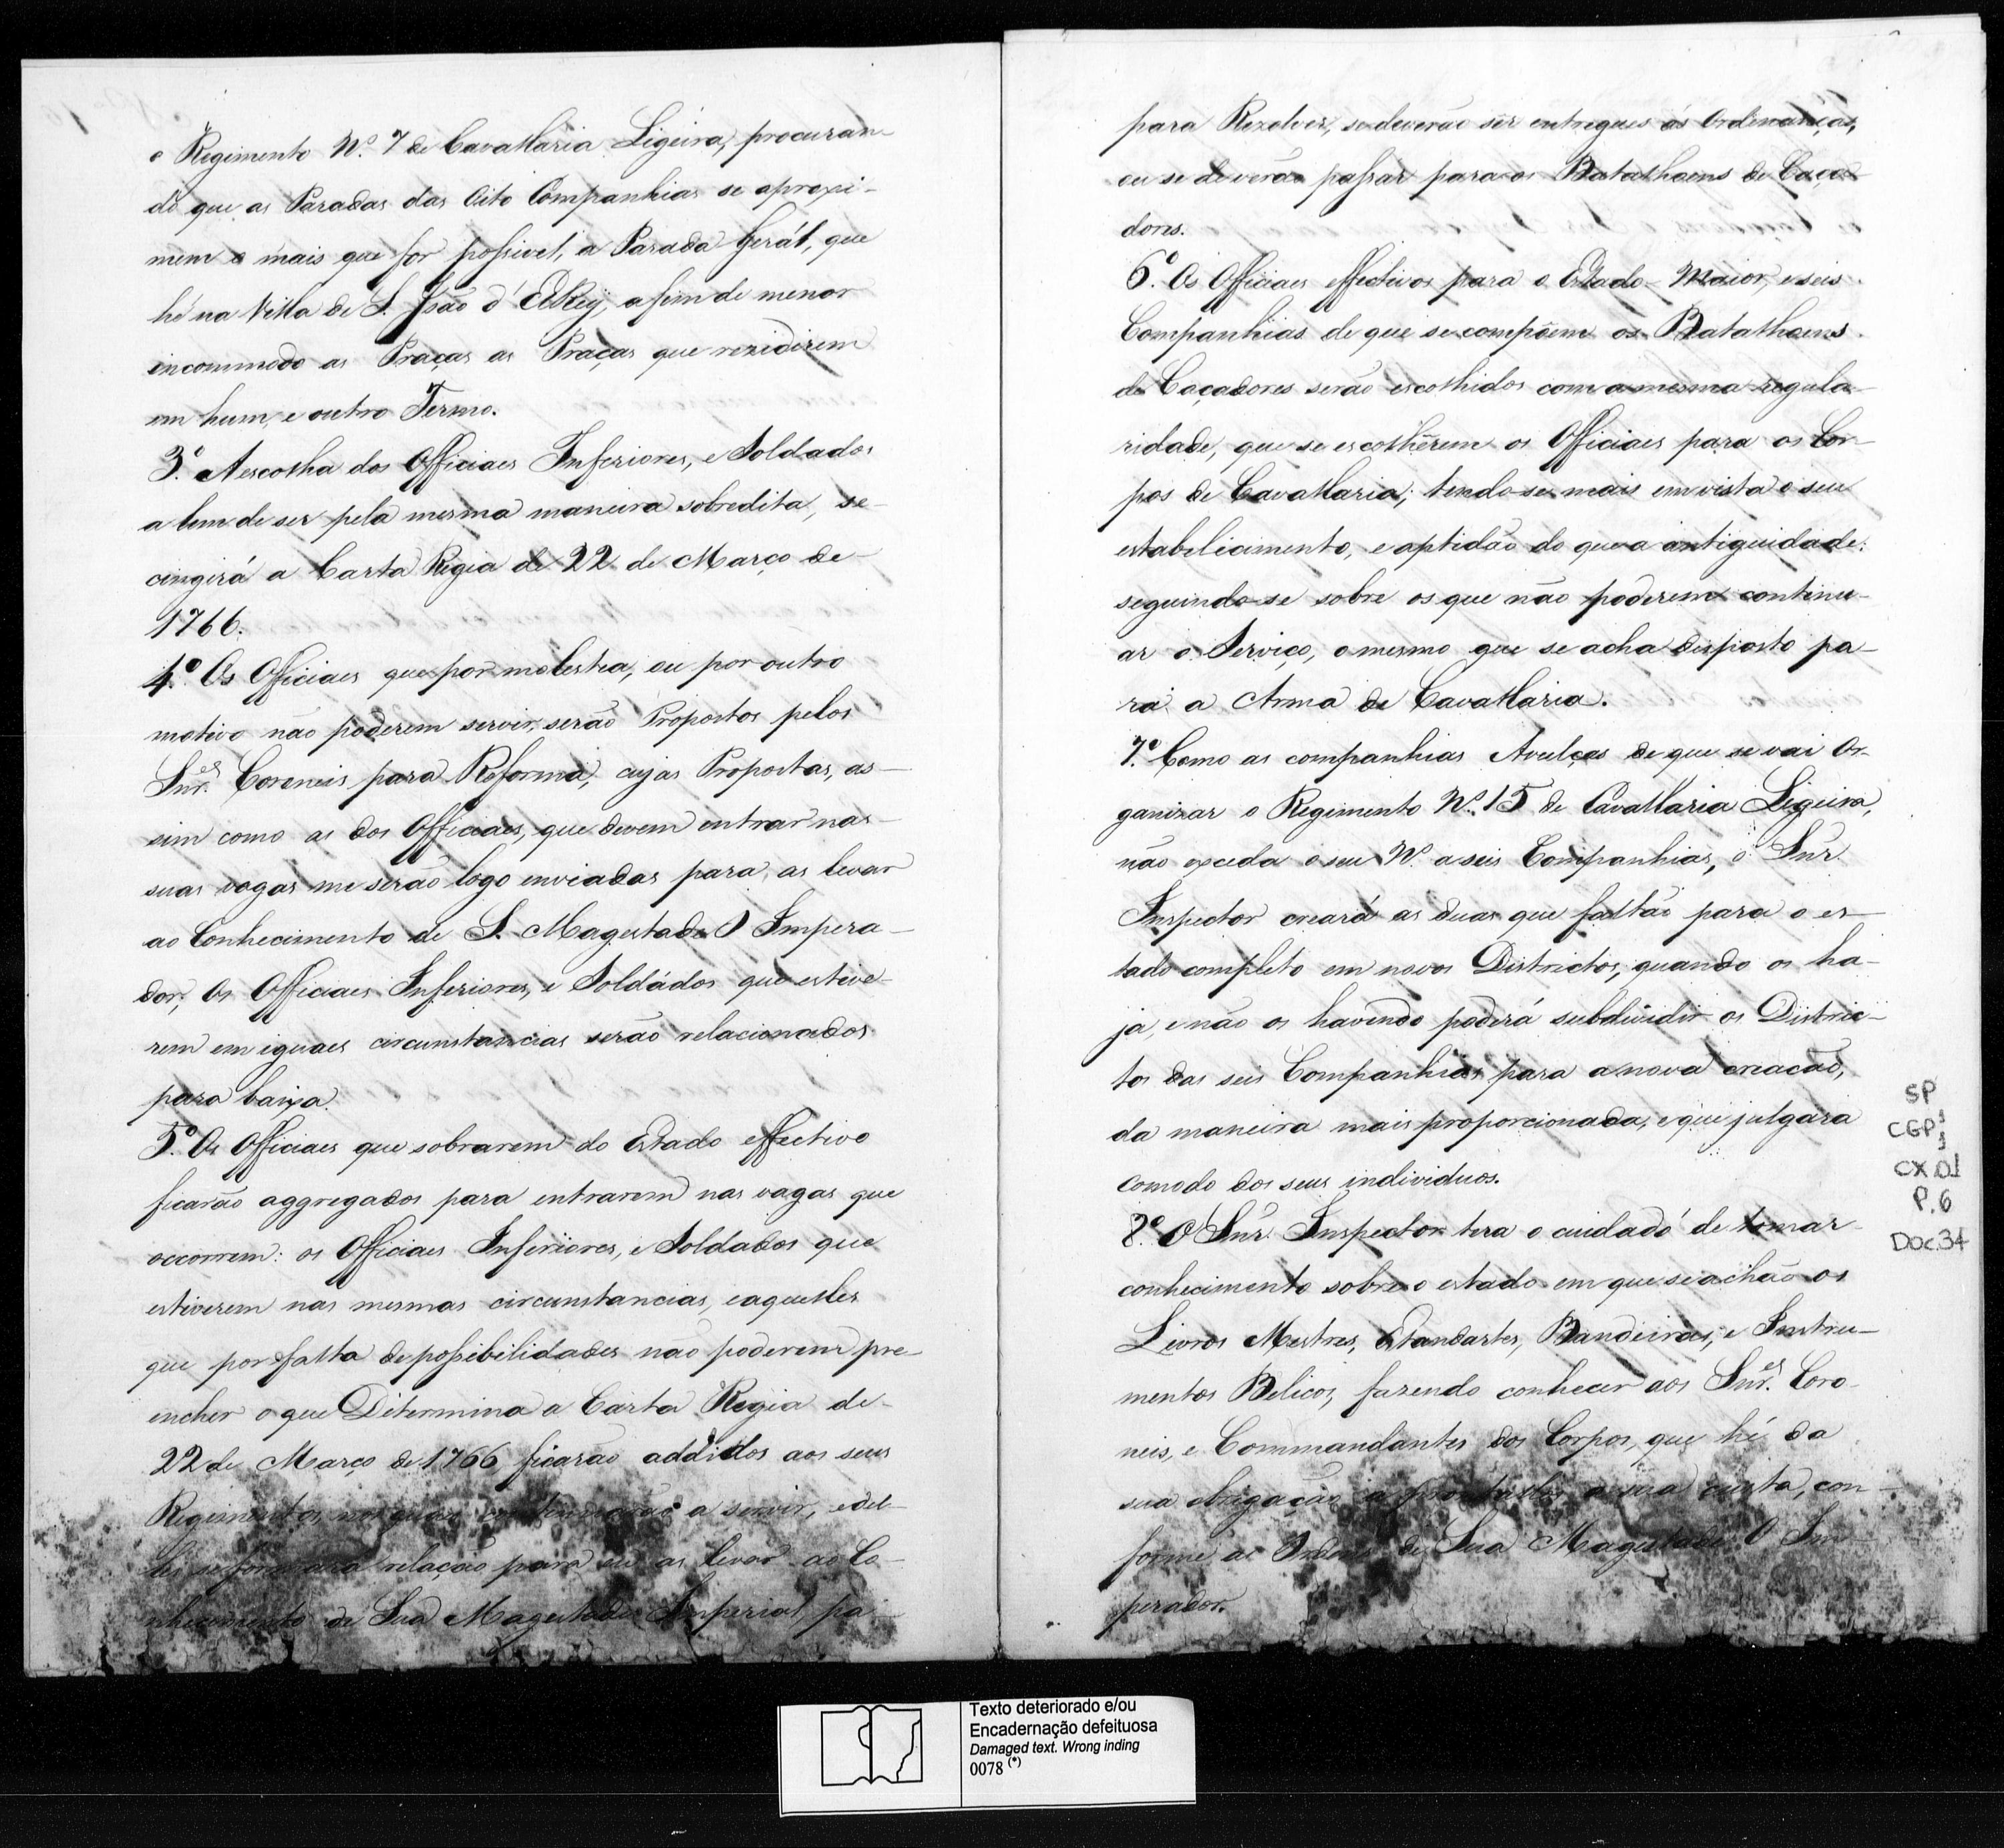 o Regimento Nº. 7 de Cavallaria Ligeira, procuran
do que as Paradas das Oito Companhias se aproxi-
mem o mais que for possivel, a Parada Gerál, que
hé na Villa de S. João d'ElRey, afim de menor
incommodo as Praças as Praças que rezidirem
em hum, e outro Termo.
3º. A escolha dos Officiaes Inferiores, e Soldados
alem de ser pela mesma maneira sobredita, se-
cingirá a Carta Regia de 22 de Março de-
1766.
4º. Os Officiaes que por molestia, ou por outro
motivo não poderem servir, serão Propostos pelos
Snr.es Coroneis para Reforma, cujas Propostas, as-
sim como as dos Officiaes, que devem entrar nas-
suas vagas me serão logo enviadas para, as levar
ao Conhecimento de S. Magestade O Impera-
dor; Os Officiaes Inferiores, e Soldádos que estive-
rem em iguaes circunstancias serão relacionados
para baixa.
5º. Os Officiaes que sobrarem do Estado effectivo
ficarão aggregados para entrarem nas vagas que
occorrem: os Officiaes Inferiores, e Soldados que
estiverem nas mesmas circunstancias, eaquelles
que por falta depossibilidades não poderem pre-
encher oque Determina a Carta Regia de-
22 de Março de 1766, ficarão addidos aos seus
Regimentos, nos quaes continuarão a servir, edel-
les se formará relação para eu as levar ao Co-
nhecimento de Sua Magestade Imperial, pa-
para Rezolver, se deverão ser entregues ás Ordenanças,
ou se deverão passar para os Batalhoens de Caça-
dores.
6º. Os Officiaes effectivos para o Estado-Maior, e seis
Companhias de que se compõem os Batalhoens
de Caçadores serão escolhidos com a mesma regula-
ridade, que se escolhêrem os Officiaes para os Cor-
pos de Cavallaria; tendo-se mais em vista o seu
estabelicimento, e aptidão do que a antiguidade:
seguindo-se sobre os que não poderem continu-
ar o Serviço, o mesmo que se acha disposto pa-
ra a Arma de Cavallaria.
7º. Como as companhias Avulças de que se vai Or-
ganizar o Regimento Nº. 15 de Cavallaria Ligeira,
não exceda o seu Nº a seis Companhias, o Snr.
Inspector creará as duas que faltão para o es-
tado completo em novos Districtos, quando os ha-
ja, e não os havendo poderá subdividir os Distric-
tos das seis Companhias para a nova creacão,
da maneira mais proporcionada, e que julgára
comodo dos seus individuos.
8º. O Snr. Inspector tera o cuidado de tomar
conhecimento sobre o estado em que se achão os
Livros Mestres, Estandartes, Bandeiras, e Instru-
mentos Belicos, fazendo conhecer aos Snr.es Coro-
neis, e Commandantes dos Corpos, que hé da
sua obrigação a promptalos a sua custa, con-
forme as Ordens de Sua Magestade O Im-
perador.
SP
CGP;
CX.01
P.6
Doc.34
Texto deteriorado e/ou
Encadernação defeituosa
Damaged text. Wrong inding
0078 (*)